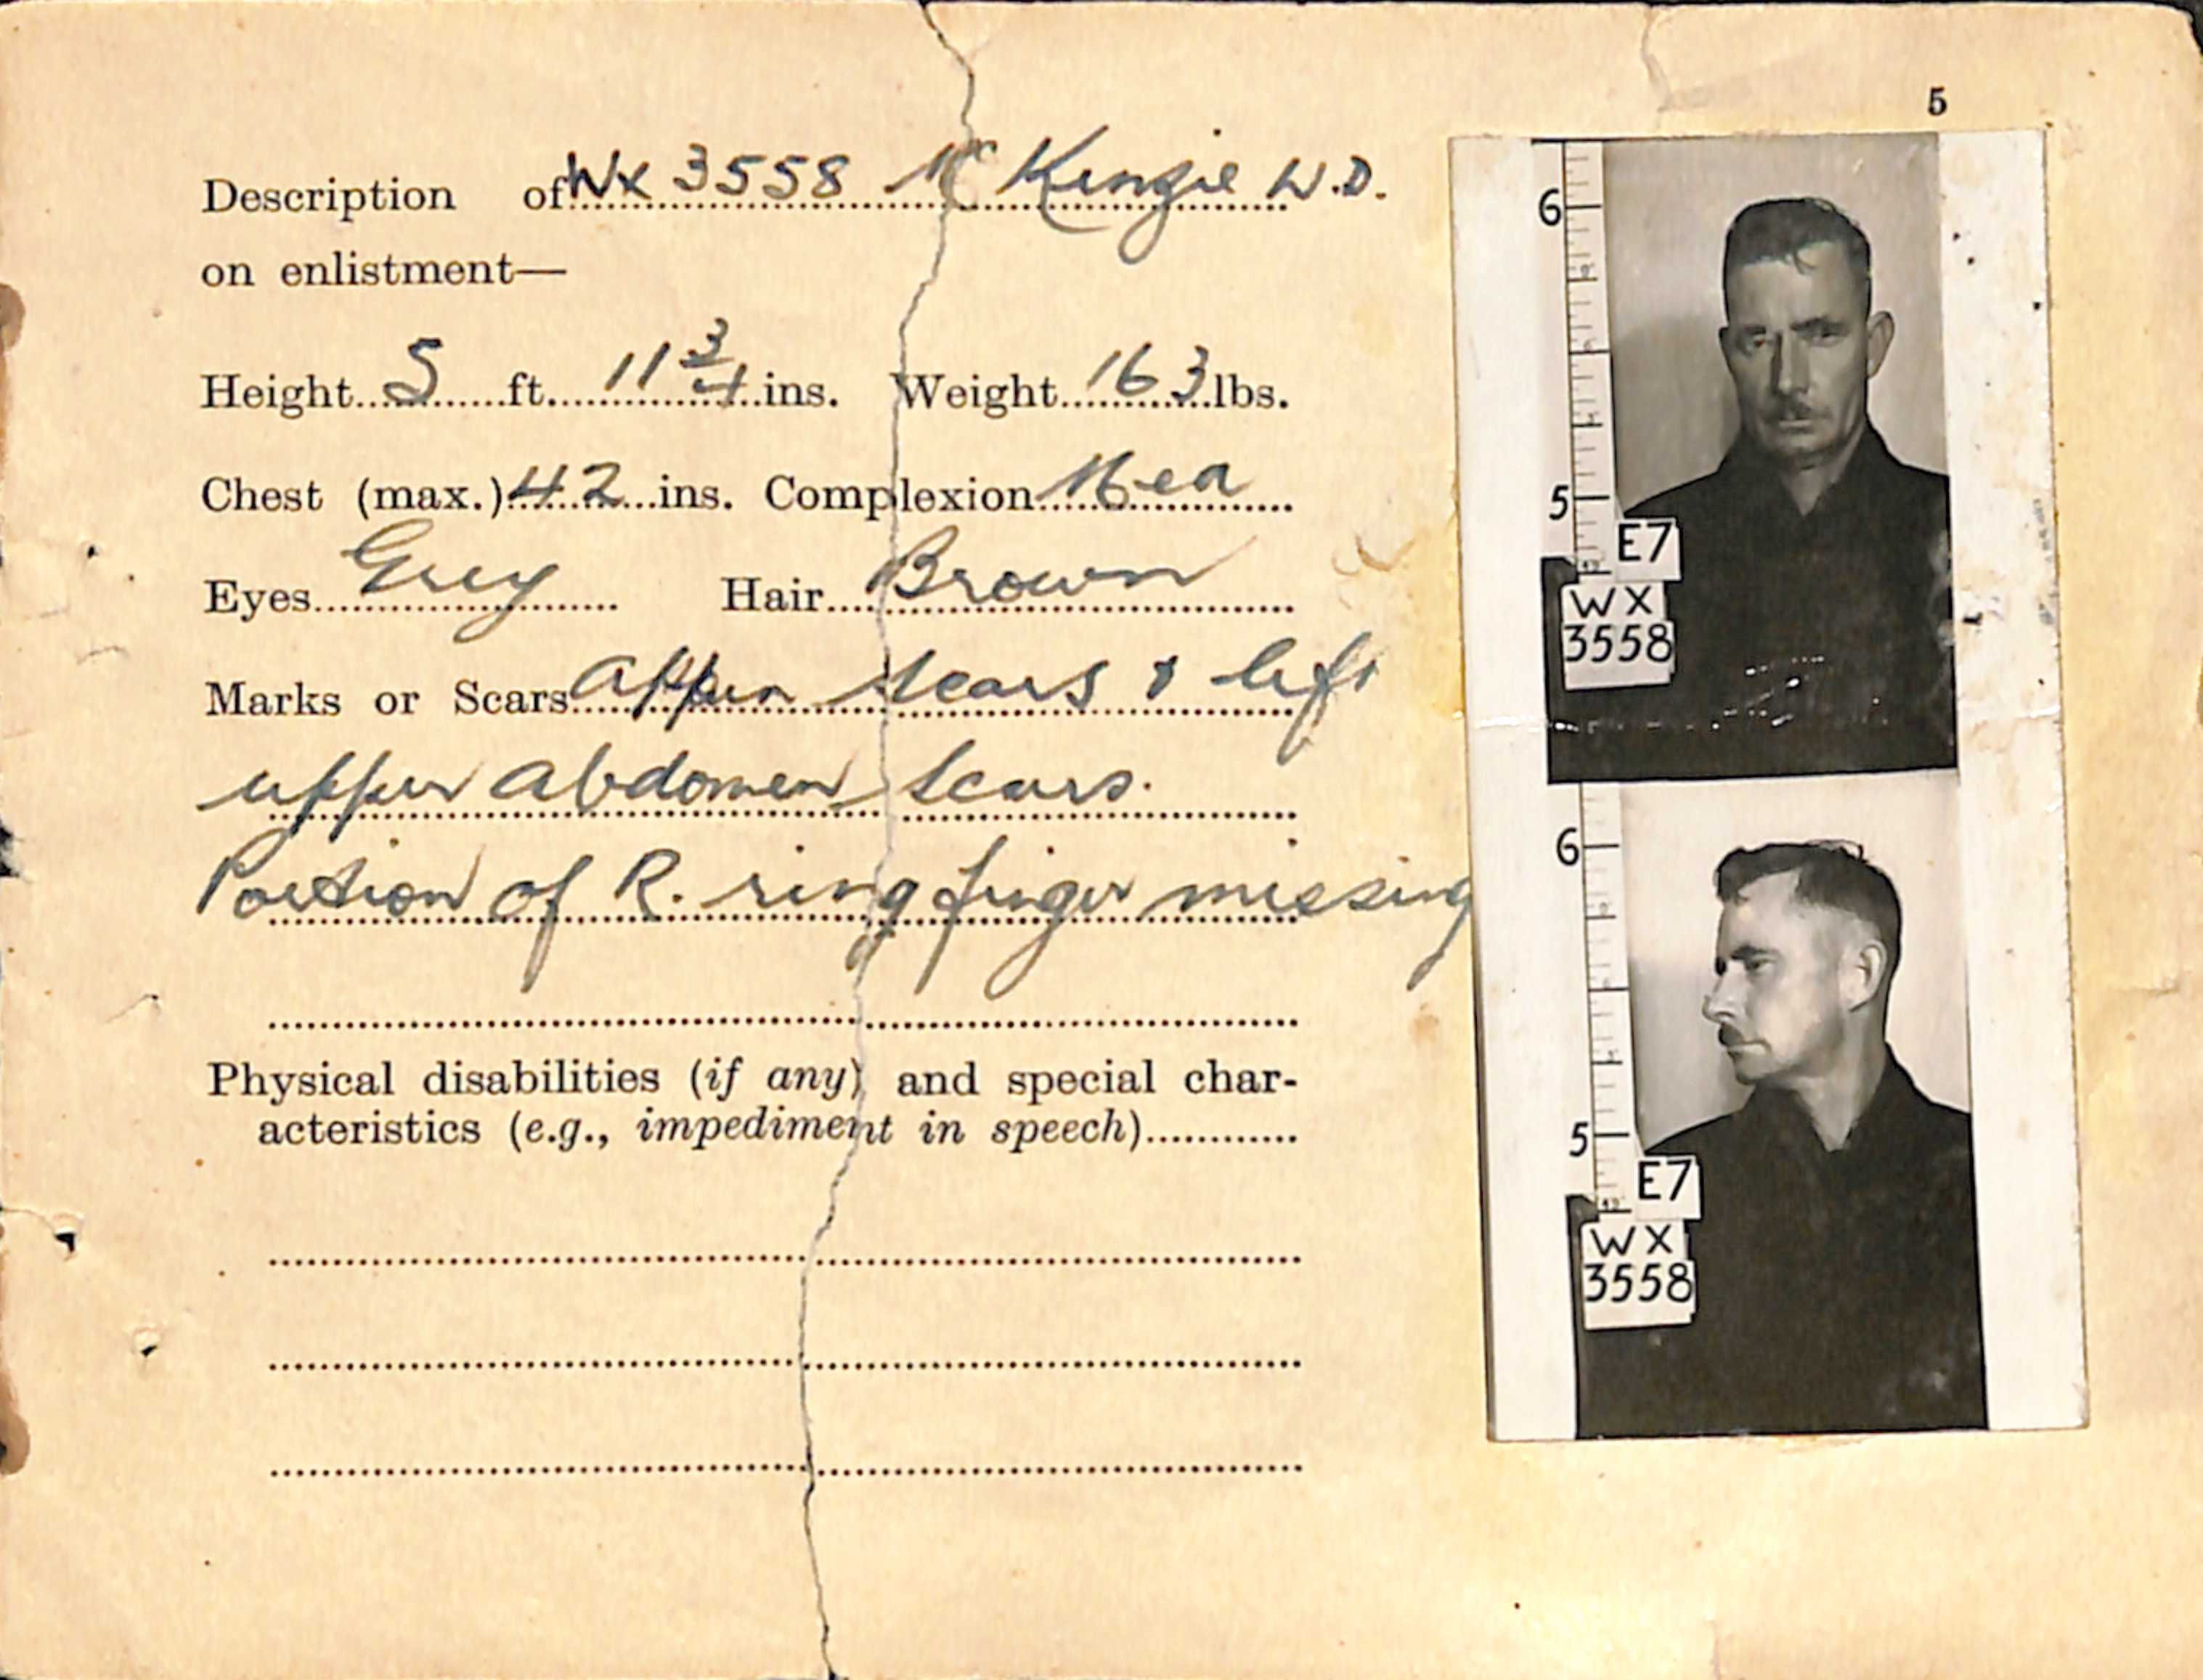 5
Description of WX 3558 McKenzie W.D.
on enlistment—
Height 5 ft. 11 3/4 ins. Weight 163 lbs.
Chest (max.) 42 ins. Complexion
Eyes Grey Hair Brown
Marks or Scars Appen scars & left
upper abdomen scars.
Portion of R. ring finger missing
Physical disabilities (if any) and special char-
acteristics (e.g., impediment in speech)
6
5
E7
WX
3558
6
5
E7
WX
3558